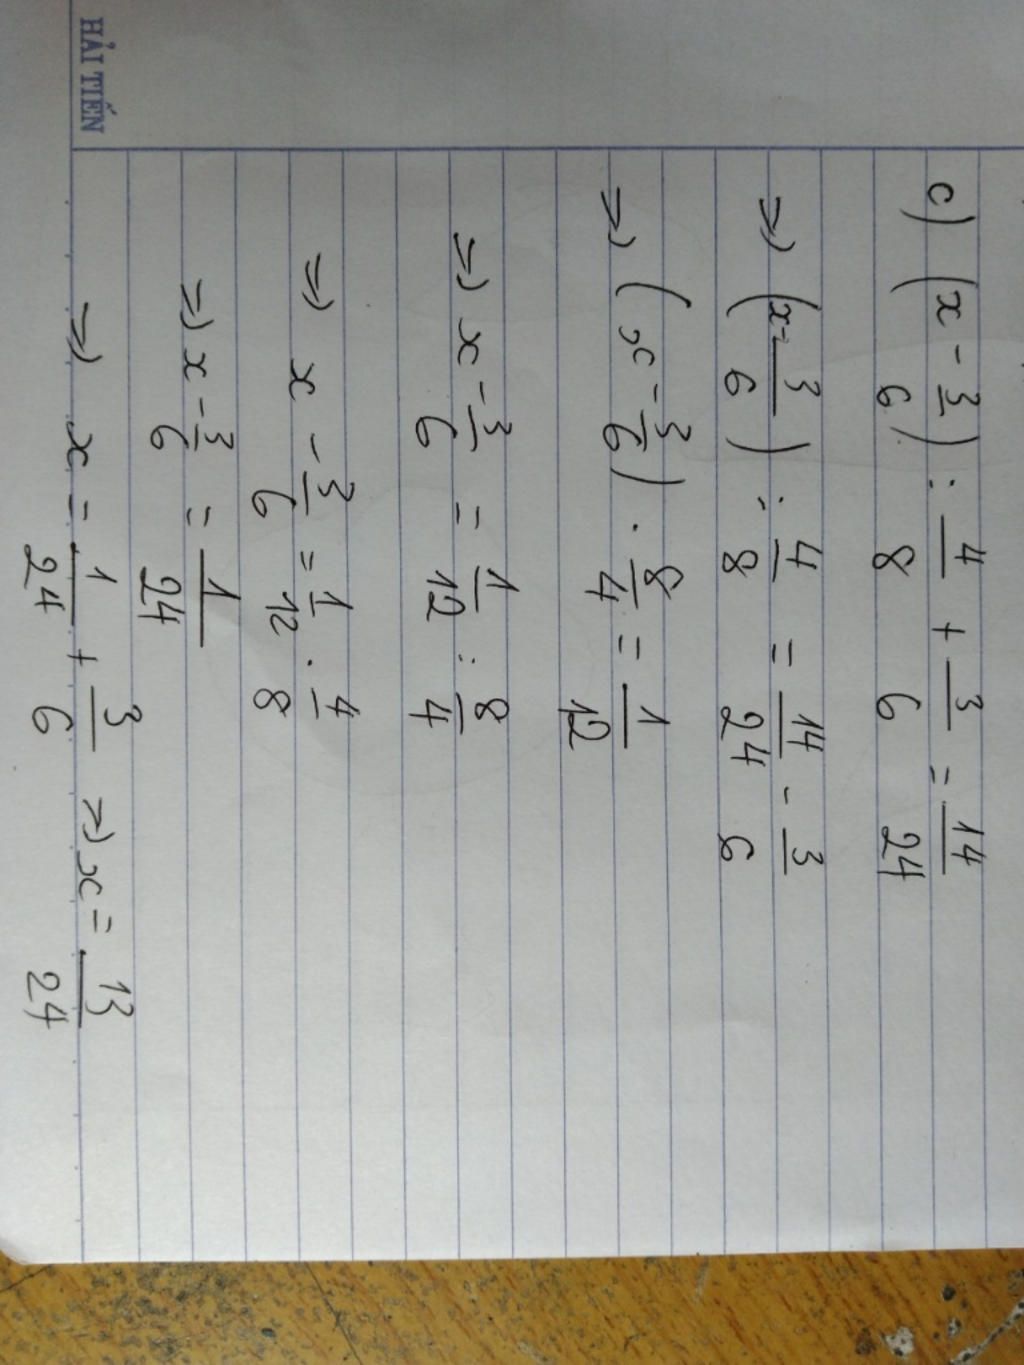 HẢI TIẾN
c) (x - 3/6) : 4/8 + 3/6 = 14/24
=> (x - 3/6) : 4/8 = 14/24 - 3/6
=> (x - 3/6) . 8/4 = 1/12
=> x - 3/6 = 1/12 : 8/4
=> x - 3/6 = 1/12 . 4/8
=> x - 3/6 = 1/24
=> x = 1/24 + 3/6 => x = 13/24